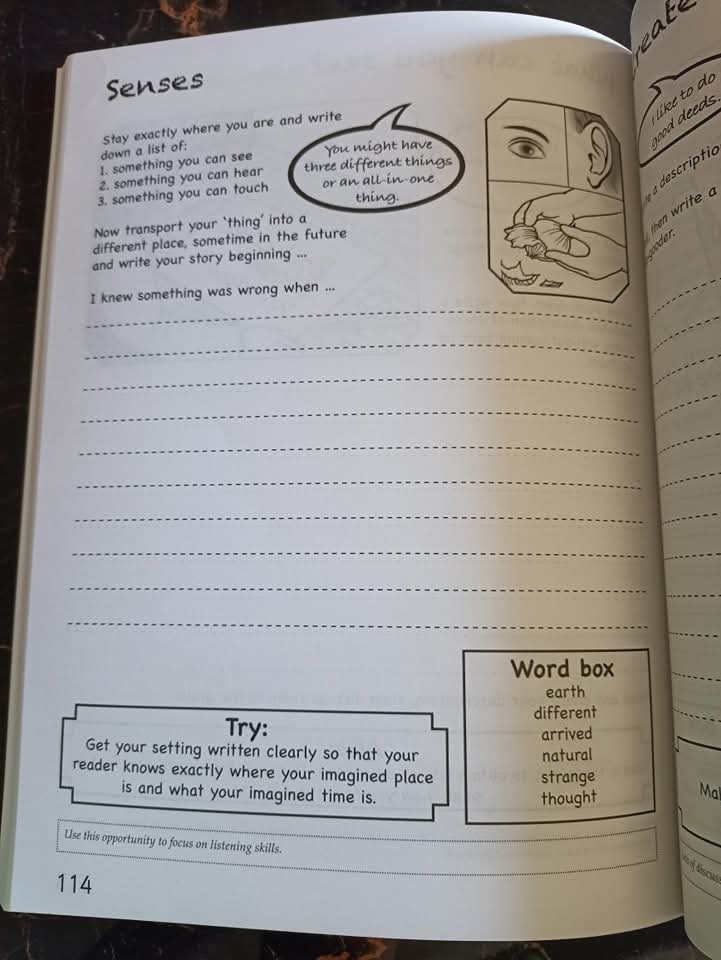 Senses
Stay exactly where you are and write
down a list of:
1. something you can see
2. something you can hear
3. something you can touch
You might have
three different things
or an all-in-one
thing.
Now transport your 'thing' into a
different place, sometime in the future
and write your story beginning ...
I knew something was wrong when ...
Try:
Get your setting written clearly so that your
reader knows exactly where your imagined place
is and what your imagined time is.
Word box
earth
different
arrived
natural
strange
thought
Use this opportunity to focus on listening skills.
114
I like to do
good deeds.
a descriptio
then write a